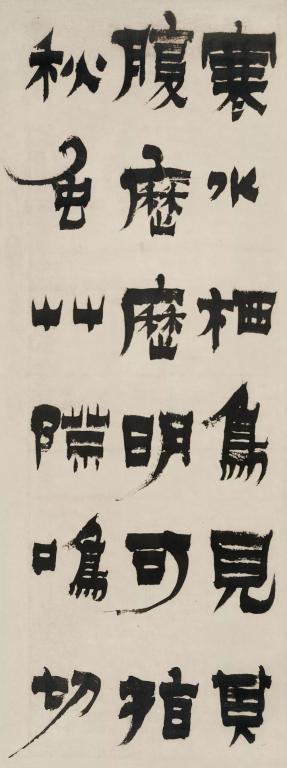 寒水栖鳥見其
腹歷歷明可指
秋虫艸鳴切